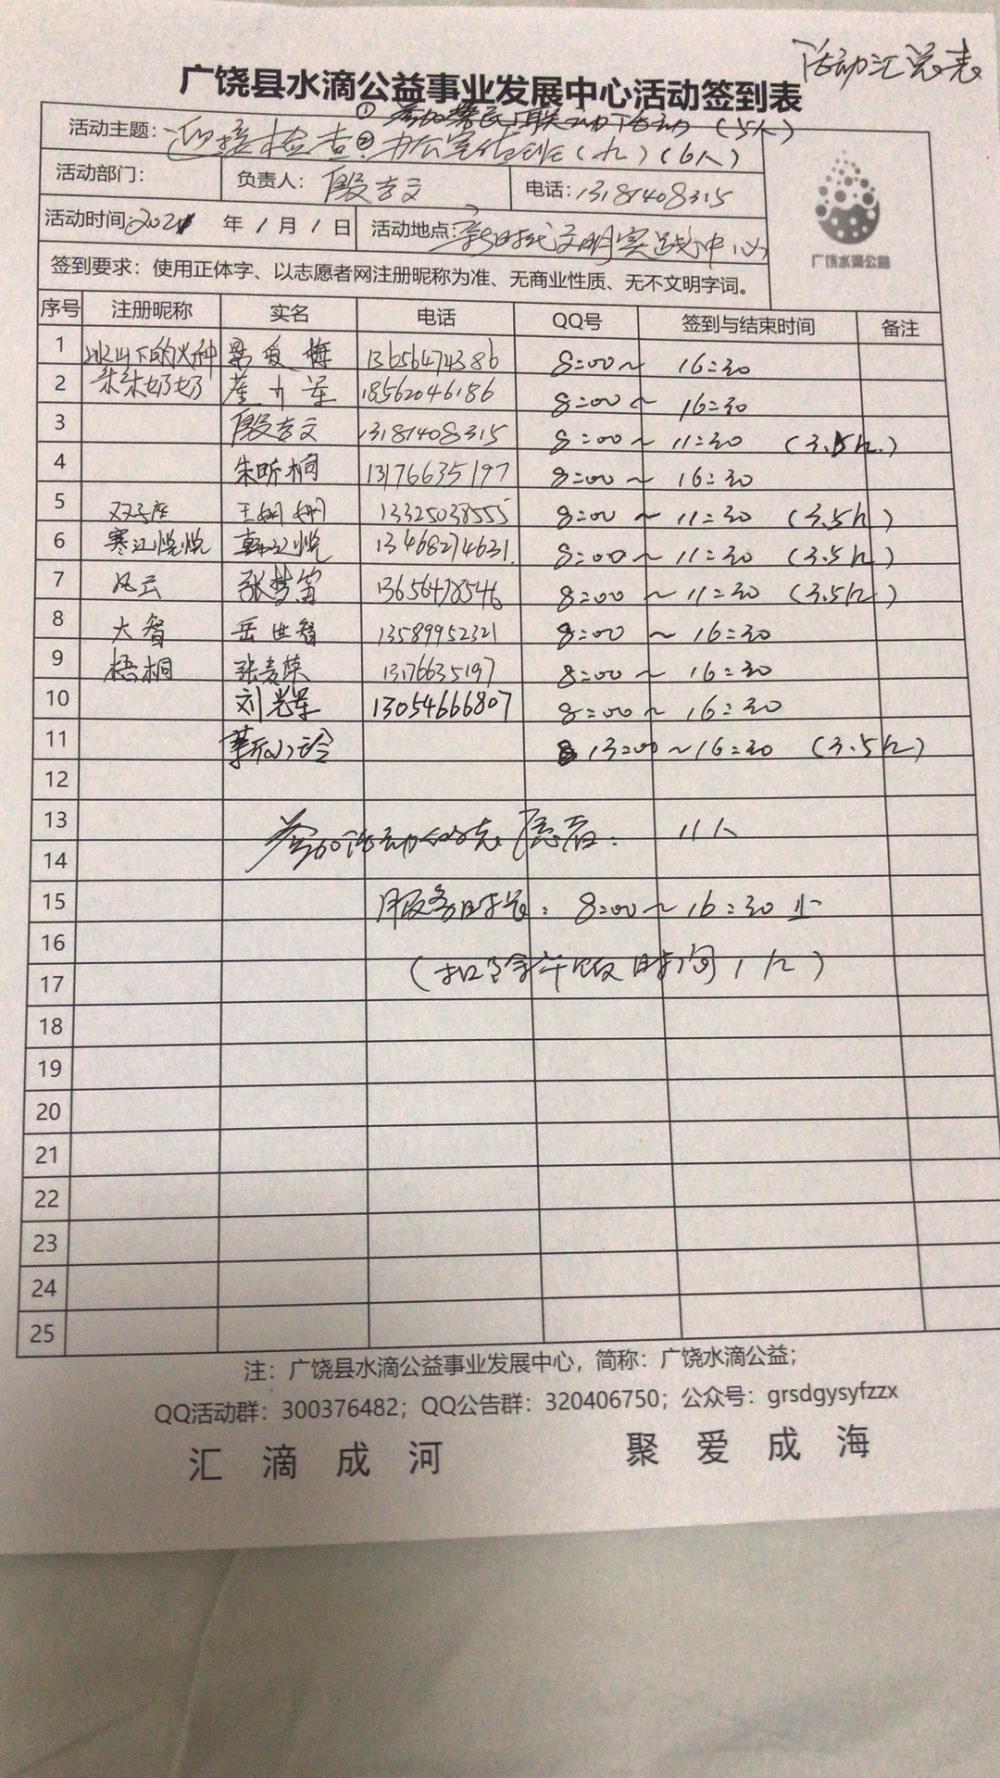 活动汇总表
广饶县水滴公益事业发展中心活动签到表
① 联动活动(5人)
活动主题: 迎接检查 ② 办公室值班(九)(6人)
活动部门: 负责人: 殷吉文 电话: 13181408315
活动时间 2021 年 1 月 1 日 活动地点: 新时代文明实践中心
广饶水滴公益
签到要求: 使用正体字、以志愿者网注册昵称为准、无商业性质、无不文明字词。
序号 注册昵称 实名 电话 QQ号 签到与结束时间 备注
1 冰山下的火种 爱梅 13656474386 8:00~ 16:30
2 朵朵奶奶 崔 军 18562046186 8:00~ 16:30
3 殷吉文 13181408315 8:00~ 11:30 (3.5h.)
4 朱昕桐 13176635197 8:00~ 16:30
5 双子座 王姗姗 13325038555 8:00~ 11:30 (3.5h)
6 寒江悦悦 韩江悦 13468274631. 8:00~ 11:30 (3.5h)
7 风云 张梦笛 13656478546 8:00 ~ 11:30 (3.5h)
8 大智 岳世智 13589952321 8:00 ~ 16:30
9 梧桐 张麦荣 13176635197 8:00~ 16:30
10 刘光军 13054666807 8:00~ 16:30
11 靳小玲 13:00~16:30 (3.5h)
12
13 参加活动的志愿者: 11人
14
15 服务时长: 8:00~16:30 止
16
17 (扣除午饭时间1h)
18
19
20
21
22
23
24
25
注: 广饶县水滴公益事业发展中心, 简称: 广饶水滴公益;
QQ活动群: 300376482; QQ公告群: 320406750; 公众号: grsdgysyfzzx
汇 滴 成 河 聚 爱 成 海